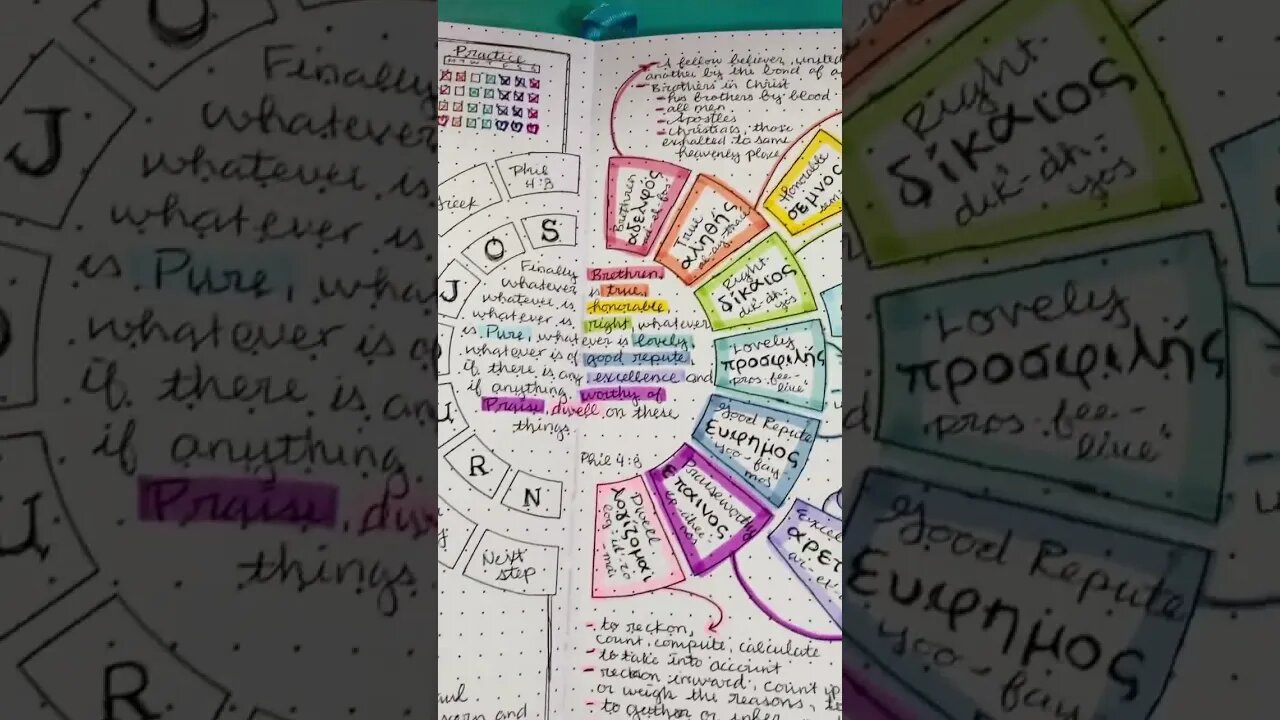 Practice
A fellow believer, united
another by the bond of
- Brothers in Christ
- his brothers by blood
- all men
- Apostles
- Christians, those
exhalted to same
heavenly place
Phil
4:8
J
O
S
U
R
N
Next
step
Finally Brethren,
whatever is true,
whatever is honorable
whatever is right, whatever
is Pure, whatever is lovely,
whatever is of good repute,
if there is any excellence and
if anything worthy of
Praise, dwell on these
things.
Phil 4:8
Brethren
αδελφός
True
αληθής
Honorable
σεμνος
Right
δίκαιος
dik-ah-
yos
Lovely
προσφιλής
pros-fee-
lace'
Good Repute
ευφημος
yoo-fay-
mos
Praiseworthy
επαινος
Dwell
λογίζομαι
log-id-zo
mai
αρετ
- to reckon,
count, compute, calculate
- to take into account
- reckon inward, count up
or weigh the reasons,
- to gather or infer
J
Finally
whatever
whatever is
whatever is
is Pure, wha
whatever is o
if there is an
if anything
Praise, dw
things
R
Right
δίκαιος
dik-ah-
yos
Lovely
προσφιλής
pros-fee-
lace'
Good Repute
ευφημος
yoo-fay